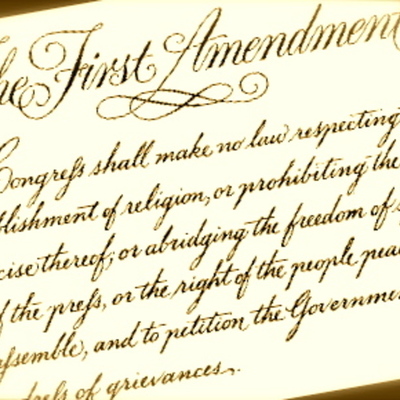 he First Amendment
Congreſs shall make no law respecting
blishment of religion, or prohibiting the
cise thereof; or abridging the freedom of s
f the preſs, or the right of the people peac
aſsemble, and to petition the Governme
dreſs of grievances.